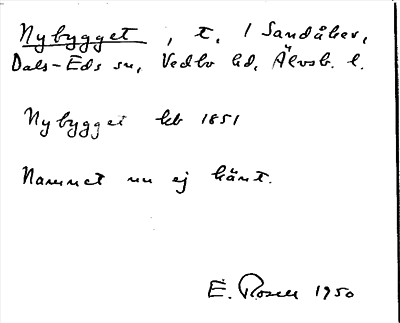 Nybygget, t. 1 Sandåker,
Dals-Eds sn, Vedbo hd, Älvsb. l.
Nybygget kb 1851
Namnet nu ej känt.
E. Rosell 1950